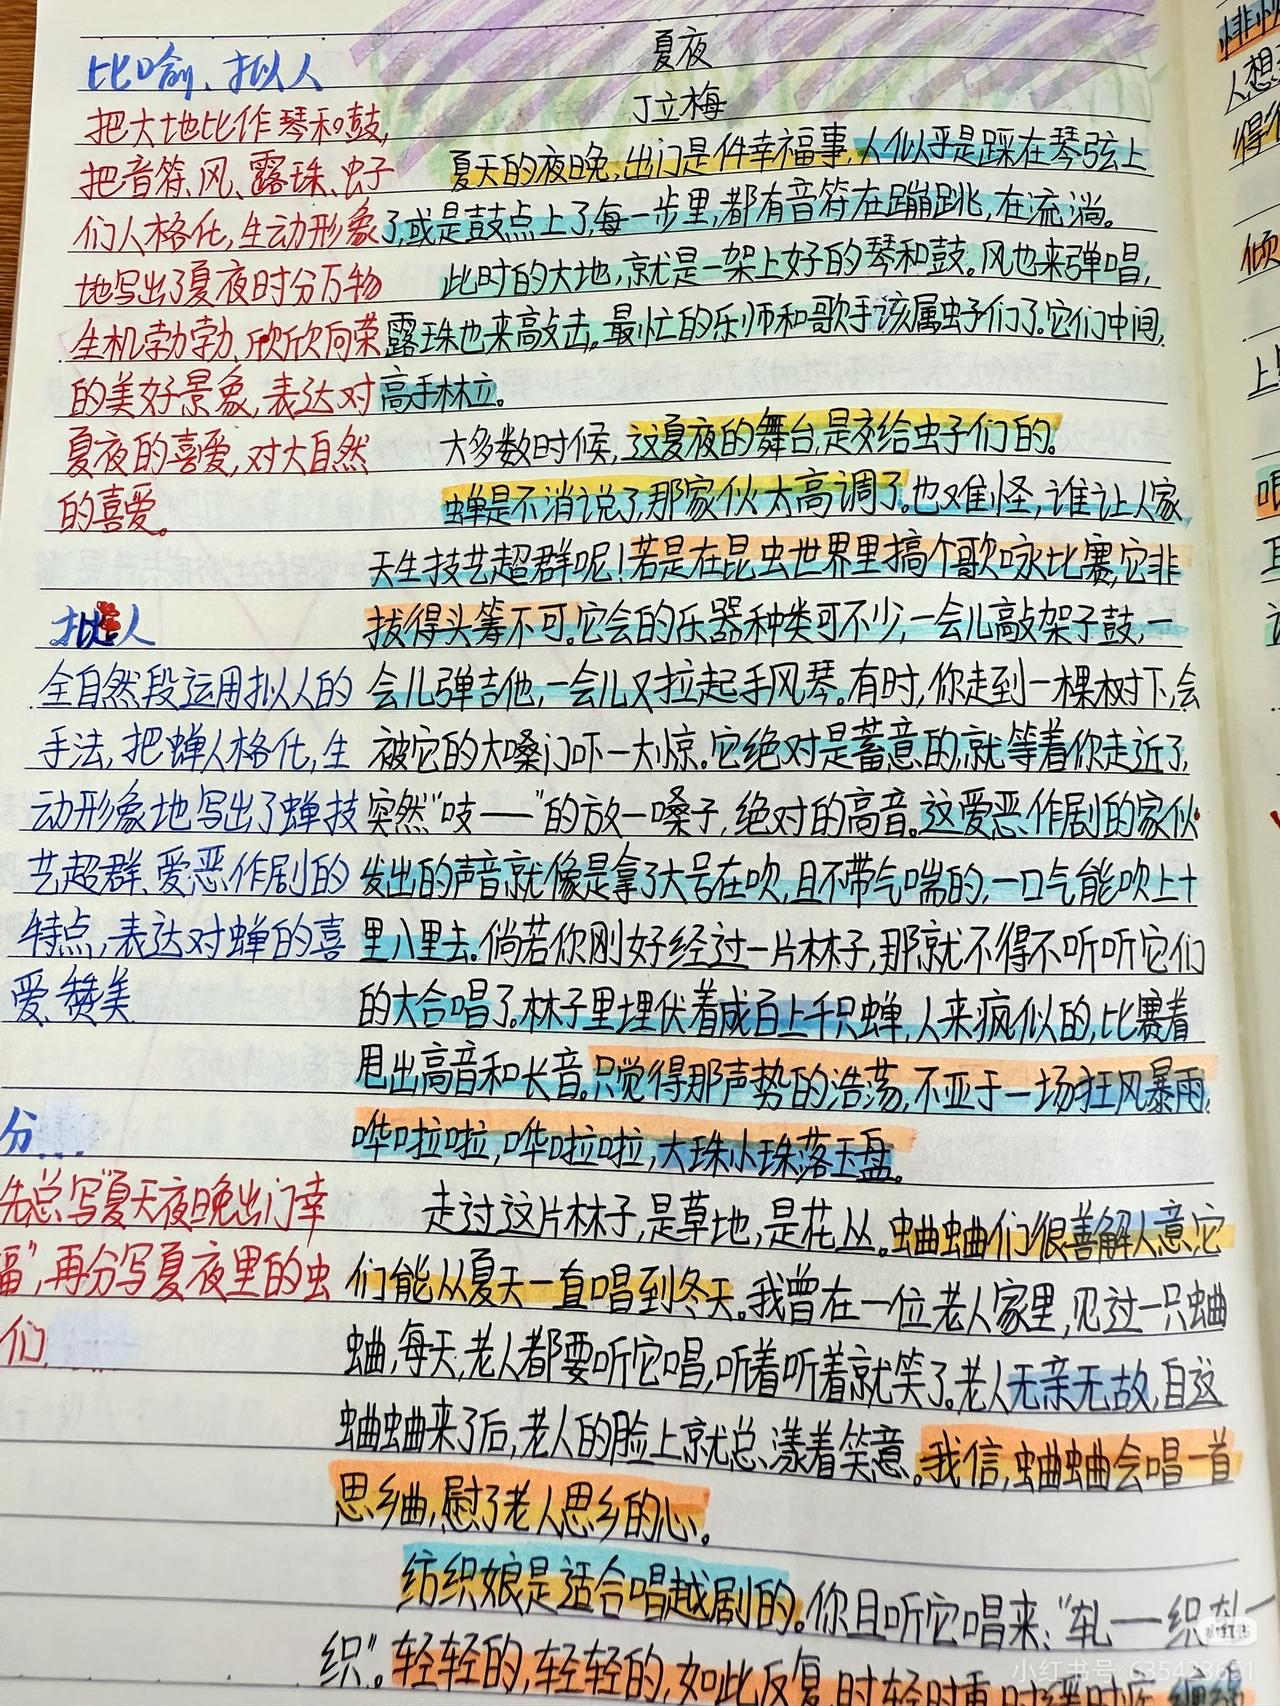 夏夜
丁立梅
夏天的夜晚,出门是件幸福事,人似乎是踩在琴弦上
了,或是鼓点上了,每一步里,都有音符在蹦跳,在流淌。
此时的大地,就是一架上好的琴和鼓。风也来弹唱,
露珠也来高敲击。最忙的乐师和歌手该属虫子们了。它们中间,
高手林立。
大多数时候,这夏夜的舞台,是交给虫子们的。
蝉是不消说了,那家伙太高调了。也难怪,谁让人家
天生技艺超群呢!若是在昆虫世界里搞个歌咏比赛,它非
拔得头筹不可。它会的乐器种类可不少,一会儿敲架子鼓,一
会儿弹吉他,一会儿又拉起手风琴。有时,你走到一棵树下,会
被它的大嗓门吓一大惊。它绝对是蓄意的,就等着你走近了,
突然“吱——”的放一嗓子,绝对的高音。这爱恶作剧的家伙
发出的声音,就像是拿了大号在吹,且不带气喘的,一口气能吹上十
里八里去。倘若你刚好经过一片林子,那就不得不听听它们
的大合唱了。林子里埋伏着成百上千只蝉,人来疯似的,比赛着
甩出高音和长音。只觉得那声势的浩荡,不亚于一场狂风暴雨,
哗啦啦,哗啦啦,大珠小珠落玉盘。
走过这片林子,是草地,是花丛。蛐蛐们很善解人意,它
们能从夏天一直唱到冬天。我曾在一位老人家里,见过一只蛐
蛐,每天,老人都要听它唱,听着听着就笑了。老人无亲无故,自这
蛐蛐来了后,老人的脸上就总漾着笑意。我信,蛐蛐会唱一首
思乡曲,慰了老人思乡的心。
纺织娘是适合唱越剧的。你且听它唱来:“轧——织,轧—
织”。轻轻的,轻轻的,如此反复,时轻时重,时缓时
比喻、拟人
把大地比作琴和鼓,
把音符、风、露珠、虫子
们人格化,生动形象
地写出了夏夜时分万物
生机勃勃、欣欣向荣
的美好景象,表达对
夏夜的喜爱,对大自然
的喜爱。
拟人
全自然段运用拟人的
手法,把蝉人格化,生
动形象地写出了蝉技
艺超群、爱恶作剧的
特点,表达对蝉的喜
爱、赞美
分
先总写“夏天夜晚出门幸
福”,再分写夏夜里的虫
们
小红书
小红书号: 635423651